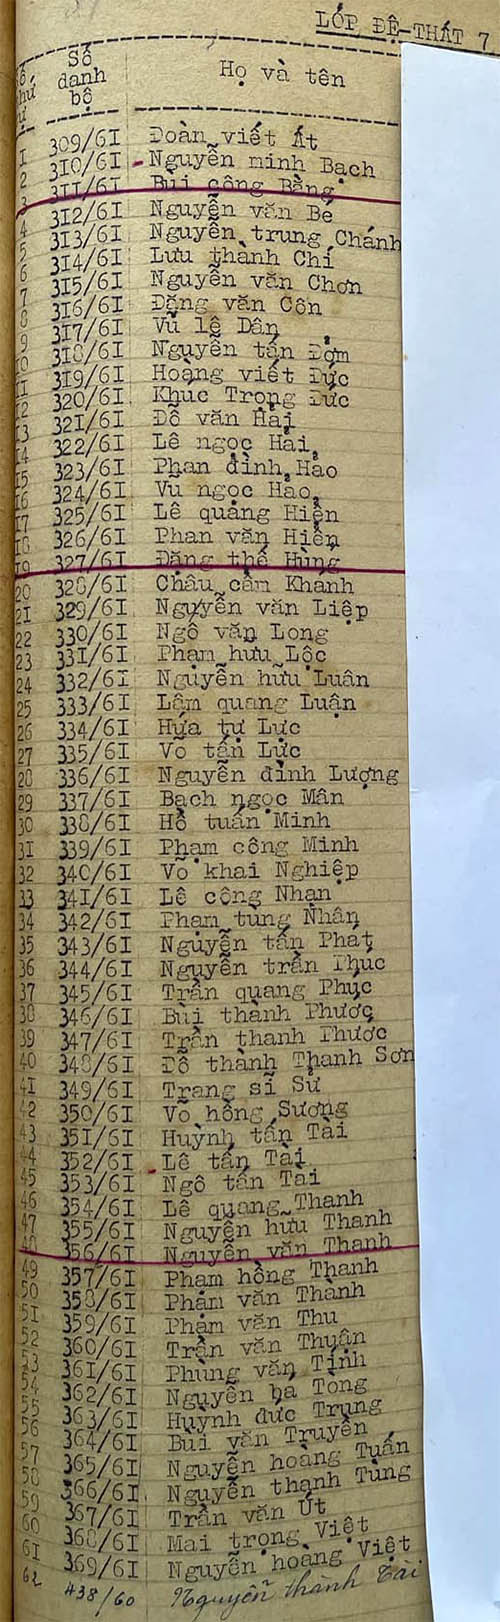 LỚP ĐỆ-THẤT 7
Số danh bộ Họ và tên
1 309/61 Đoàn viết Át
2 310/61 Nguyễn minh Bạch
3 311/61 Bùi công Bằng
4 312/61 Nguyễn văn Bé
5 313/61 Nguyễn trung Chánh
6 314/61 Lưu thành Chí
7 315/61 Nguyễn văn Chơn
8 316/61 Đặng văn Côn
9 317/61 Vũ lê Dân
10 318/61 Nguyễn tấn Đởm
11 319/61 Hoàng viết Đức
12 320/61 Khúc Trọng Đức
13 321/61 Đỗ văn Hải
14 322/61 Lê ngọc Hải
15 323/61 Phan đình Hảo
16 324/61 Vũ ngọc Hảo
17 325/61 Lê quảng Hiển
18 326/61 Phan văn Hiển
19 327/61 Đặng thế Hùng
20 328/61 Châu cẩm Khanh
21 329/61 Nguyễn văn Liệp
22 330/61 Ngô văn Long
23 331/61 Phạm hữu Lộc
24 332/61 Nguyễn hữu Luân
25 333/61 Lâm quang Luận
26 334/61 Hứa tự Lực
27 335/61 Võ tấn Lực
28 336/61 Nguyễn đình Lượng
29 337/61 Bạch ngọc Mân
30 338/61 Hồ tuấn Minh
31 339/61 Phạm công Minh
32 340/61 Võ khai Nghiệp
33 341/61 Lê công Nhạn
34 342/61 Phạm tùng Nhân
35 343/61 Nguyễn tấn Phát
36 344/61 Nguyễn trần Phúc
37 345/61 Trần quang Phục
38 346/61 Bùi thành Phước
39 347/61 Trần thanh Phước
40 348/61 Đỗ thành Thanh Sơn
41 349/61 Trang sĩ Sử
42 350/61 Võ hồng Sương
43 351/61 Huỳnh tấn Tài
44 352/61 Lê tấn Tài
45 353/61 Ngô tấn Tài
46 354/61 Lê quang Thanh
47 355/61 Nguyễn hữu Thanh
48 356/61 Nguyễn văn Thanh
49 357/61 Phạm hồng Thanh
50 358/61 Phạm văn Thành
51 359/61 Phạm văn Thu
52 360/61 Trần văn Thuận
53 361/61 Phùng văn Tịnh
54 362/61 Nguyễn bá Tòng
55 363/61 Huỳnh đức Trung
56 364/61 Bùi văn Truyền
57 365/61 Nguyễn hoàng Tuấn
58 366/61 Nguyễn thanh Tùng
59 367/61 Trần văn Út
60 368/61 Mai trọng Việt
61 369/61 Nguyễn hoàng Việt
62 438/60 Nguyễn thành Tài